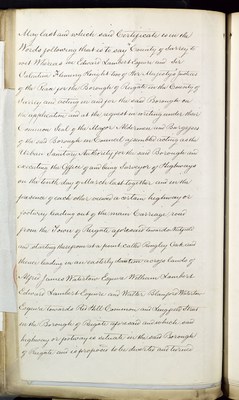 May last and which said Certificate is in the
Words following that is to say County of Surrey to
wit Whereas we Edward Lambert Esquire and Sir
Valentine Fleming Knight two of Her Majesty's Justices
of the Peace for the Borough of Reigate in the County of
Surrey and acting in and for the said Borough on
an application and at the request in writing under their
Common Seal of the Mayor Aldermen and Burgesses
of the said Borough in Council assembled acting as the
Urban Sanitary Authority for the said Borough and
executing the Office of and being Surveyor of Highways
on the tenth day of March last together and in the
presence of each other viewed a certain highway or
footway leading out of the main Carriage road
from the Town of Reigate aforesaid towards
and starting thereform at a point called Oak and
thence leading in an easterly direction across lands of
Alfred James Waterlow Esquire William Lambert
Edward Lambert Esquire and Walter Blanford Waterlow
Esquire towards Red Hill Common and Street
in the Borough of Reigate aforesaid and which said
highway or footway is situate in the said Borough
of Reigate and is proposed to be diverted and turned